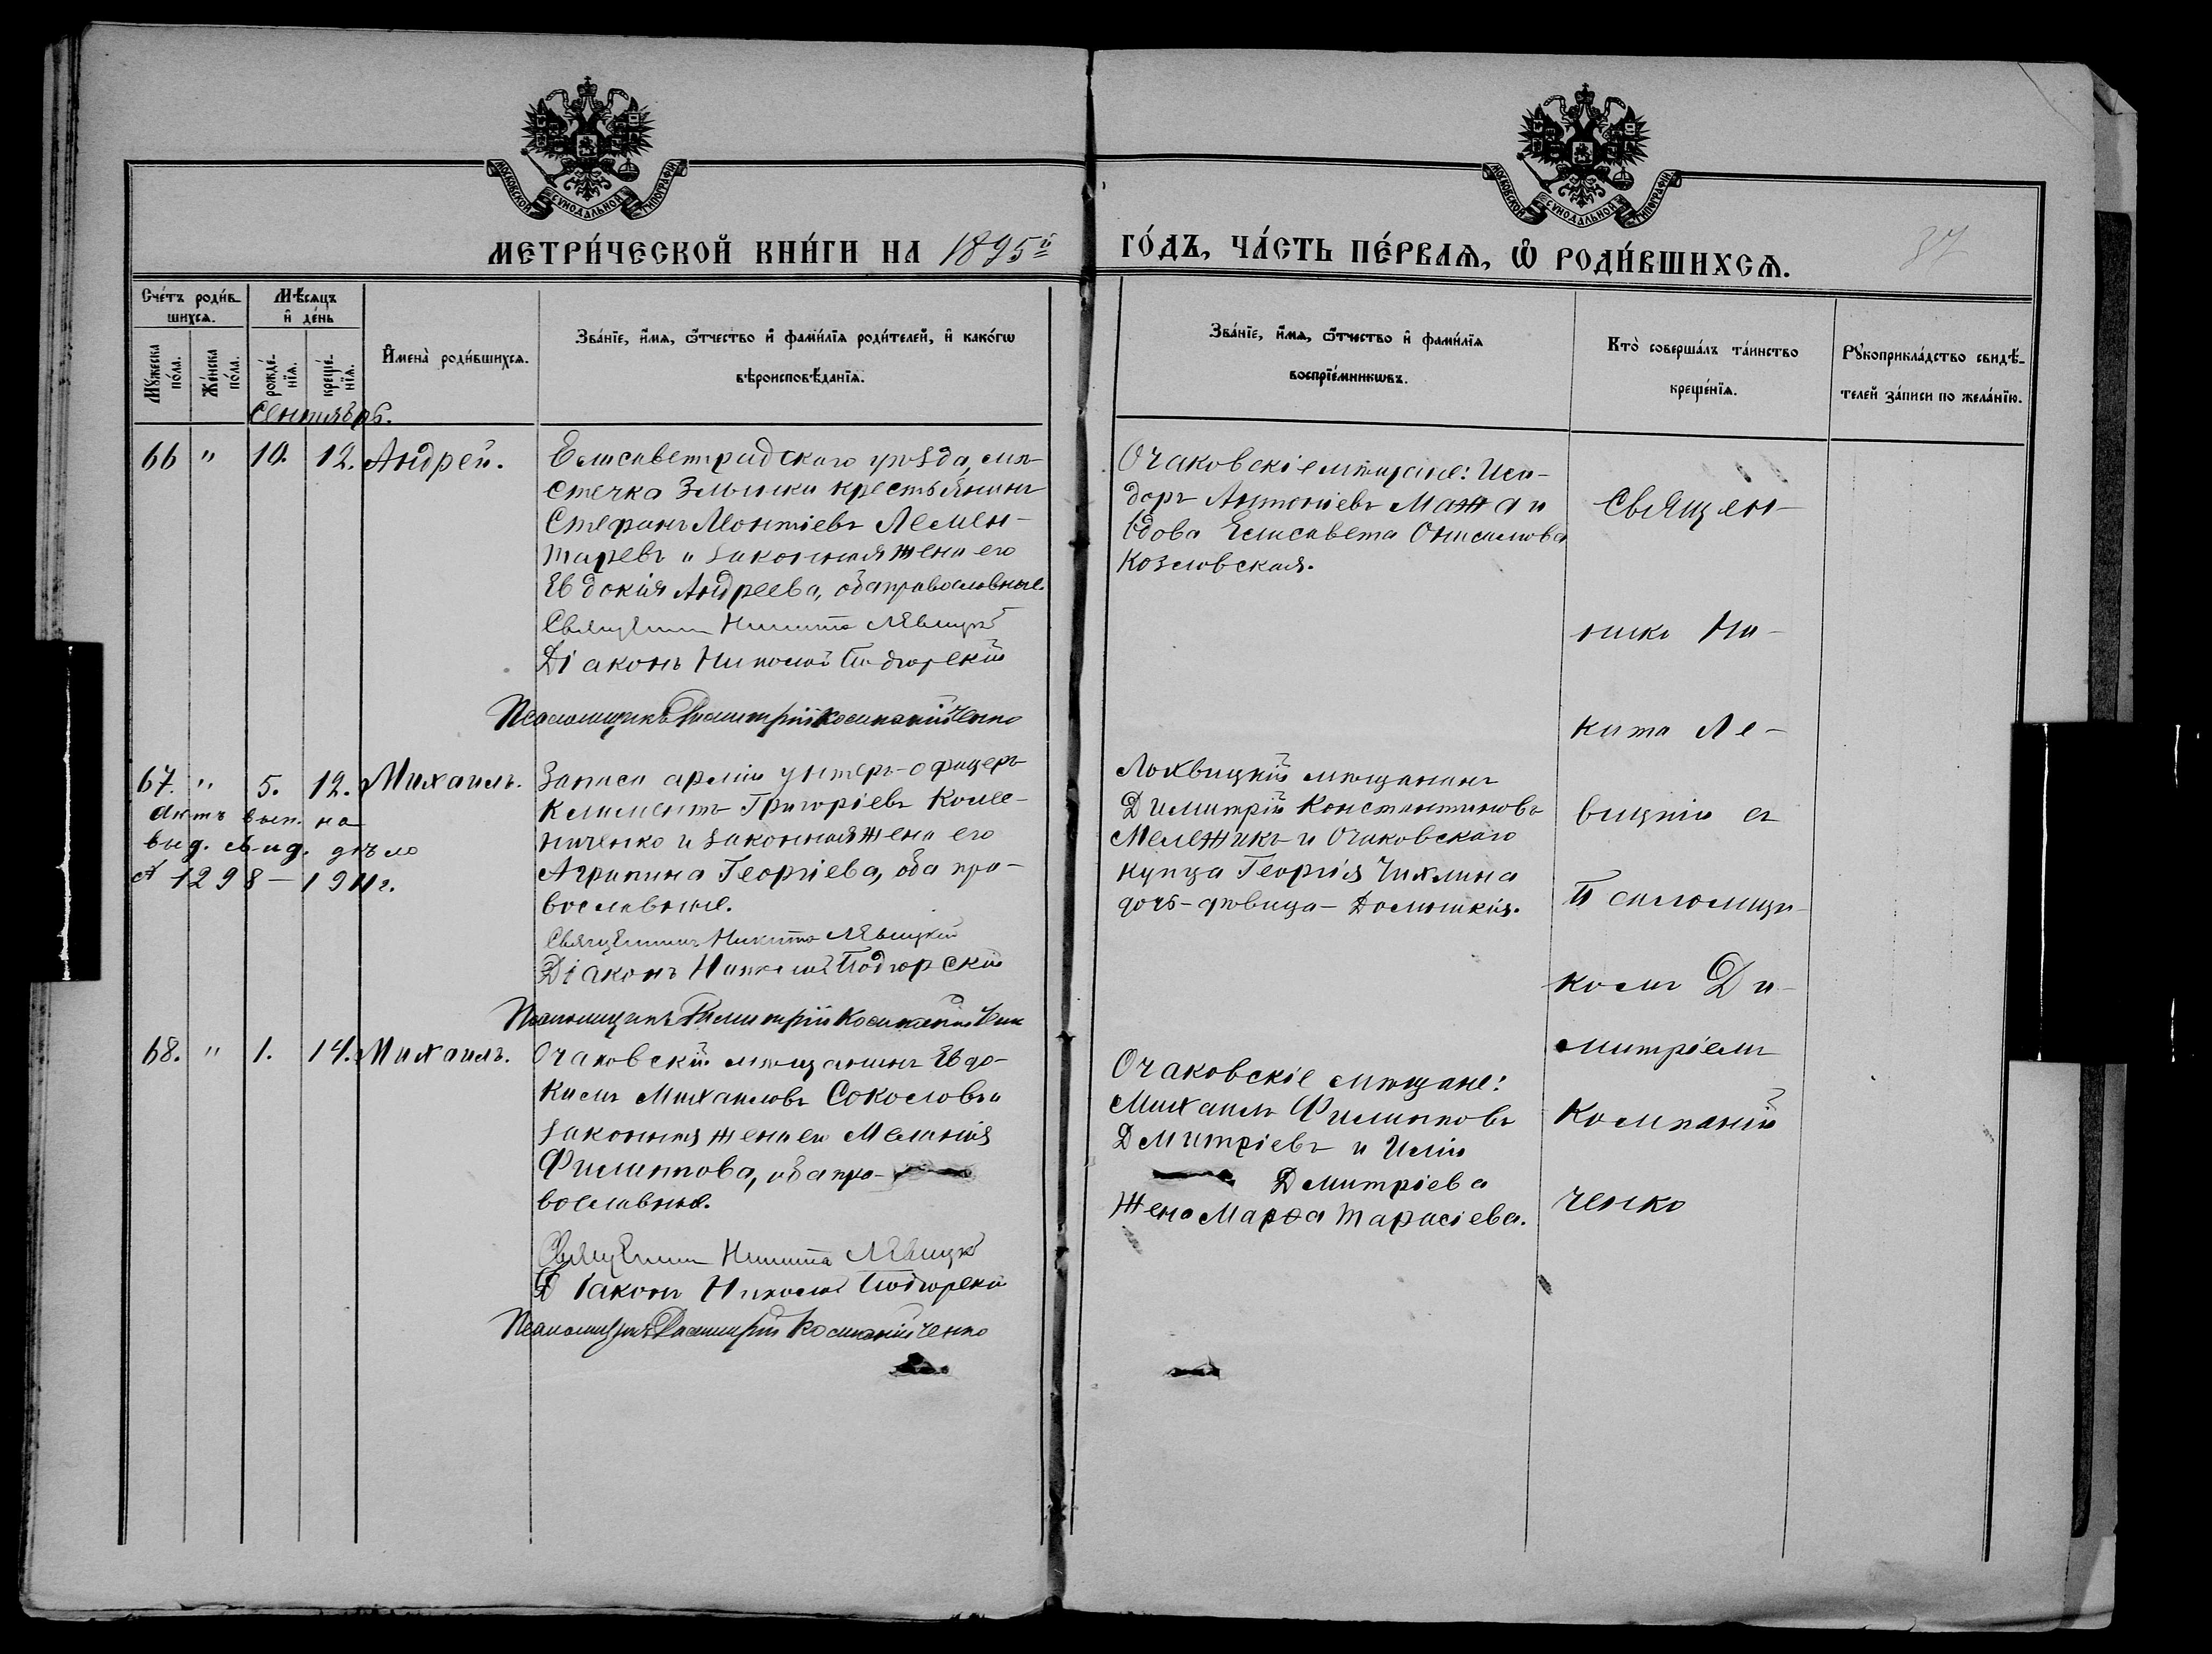 МОСКОВСКОЙ СѴНОДАЛЬНОЙ ТИПОГРАФІИ
МОСКОВСКОЙ СѴНОДАЛЬНОЙ ТИПОГРАФІИ
МЕТРИ́ЧЕСКОЙ КНИ́ГИ НА 1895й
ГО́ДЪ, ЧА́СТЬ ПЕ́РВАѦ, Ѽ РОДИ́ВШИХСѦ.
37
Сче́тъ роди́в-
шихсѧ.
Мꙋ́жеска по́ла.
Же́нска по́ла.
Мѣ́сѧцъ
и҆ де́нь
рожде́-
нїѧ.
креще́-
нїѧ.
И҆мена̀ роди́вшихсѧ.
Зва́нїе, и҆́мѧ, ѻ҆́тчество и҆ фами́лїѧ роди́телей, и҆ како́гѡ
вѣроисповѣ́данїѧ.
Зва́нїе, и҆́мѧ, ѻ҆́тчество и҆ фами́лїѧ
воспрїе́мникѡвъ.
Кто̀ соверша́лъ та́инство
креще́нїѧ.
Рꙋкоприкла́дство свидѣ́-
телей за́писи по жела́нїю.
Сентябрь.
66 " 10. 12. Андрей.
Елисаветградскаго уѣзда, мѣ-
стечка Злынки крестьянинъ
Стефанъ Леонтіевъ Лемен-
таревъ и законная жена его
Евдокія Андреева, оба православные.
Священникъ Никита Лѣвицкій
Діаконъ Николай Подгорскій
Псаломщикъ Димитрій Компанійченко
Очаковскіе мѣщане: Иси-
доръ Антоніевъ Мажа и
вдова Елисавета Онисимова
Козловская.
67. " 5. 12. Михаилъ.
Актъ вып. на
выд. свид. дѣло
№ 1298 – 1911 г.
Запаса арміи унтеръ-офицеръ
Климентъ Григоріевъ Колес-
ниченко и законная жена его
Агрипина Георгіева, оба пра-
вославные.
Священникъ Никита Лѣвицкій
Діаконъ Николай Подгорскій
Псаломщикъ Димитрій Компанійченко
Лохвицкій мѣщанинъ
Димитрій Константиновъ
Мележикъ и Очаковскаго
купца Георгія Чихлина
дочь-дѣвица – Домникія.
68. " 1. 14. Михаилъ.
Очаковскій мѣщанинъ Евдо-
кимъ Михаиловъ Соколовъ и
законная жена его Меланія
Филиппова, оба пра-
вославные.
Священникъ Никита Лѣвицкій
Діаконъ Николай Подгорскій
Псаломщикъ Димитрій Компанійченко
Очаковскіе мѣщане:
Михаилъ Филипповъ
Дмитріевъ и Иліи
Дмитріева
жена Марѳа Тарасіева.
Священ-
никъ Ни-
кита Ле-
вицкій съ
Псаломщи-
комъ Ди-
митріемъ
Компаній
ченко